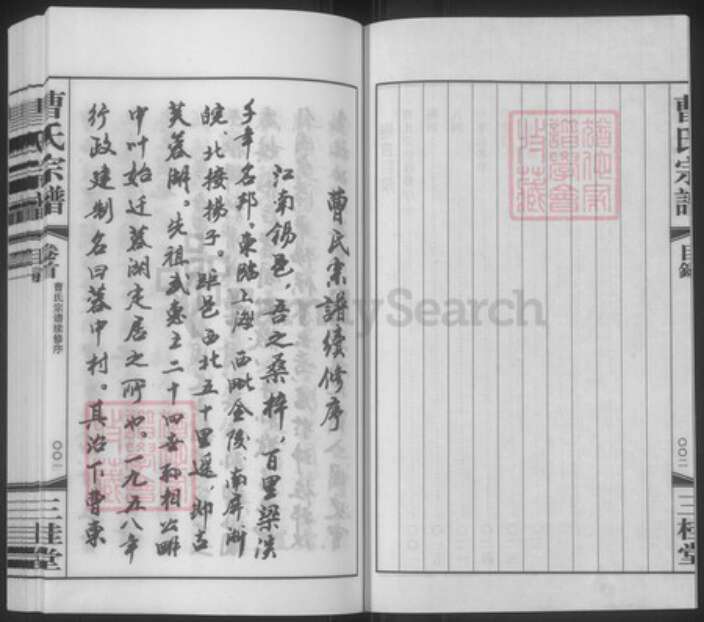 曹氏宗譜
目錄
〇〇二
三桂堂
曹氏宗譜續修序
江南錫邑，吾之桑梓，百里梁溪
千年名邦。東臨上海、西毗金陵、南屏浙
皖、北接揚子。距邑西北五十里遥，即古
芙蓉湖。先祖武惠王二十四世孫相公畔
中叶始迁蓉湖定居之所也。一九五八年
行政建制名曰蓉中村。其治下曹東
曹氏宗譜
卷首
曹氏宗譜续修序
〇〇一
三桂堂
FamilySearch